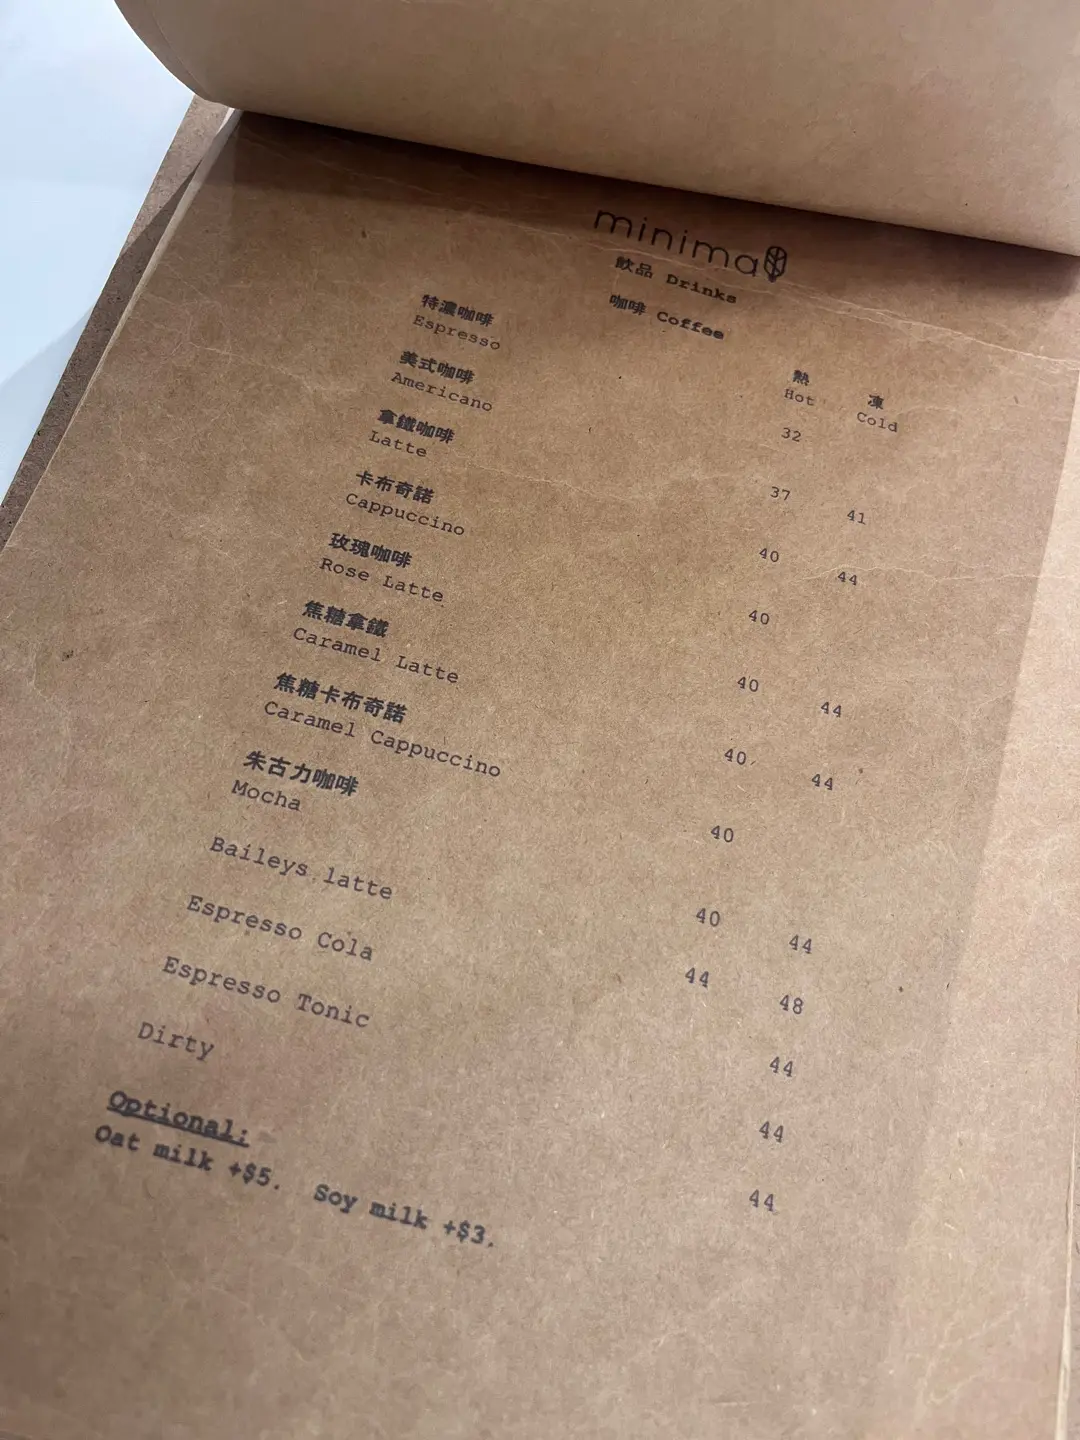 minima
飲品 Drinks
咖啡 Coffee
熱 凍
Hot Cold
特濃咖啡
Espresso 32
美式咖啡
Americano 37 41
拿鐵咖啡
Latte 40 44
卡布奇諾
Cappuccino 40
玫瑰咖啡
Rose Latte 40 44
焦糖拿鐵
Caramel Latte 40 44
焦糖卡布奇諾
Caramel Cappuccino 40
朱古力咖啡
Mocha 40 44
Baileys latte 44 48
Espresso Cola 44
Espresso Tonic 44
Dirty 44
Optional:
Oat milk +$5. Soy milk +$3.